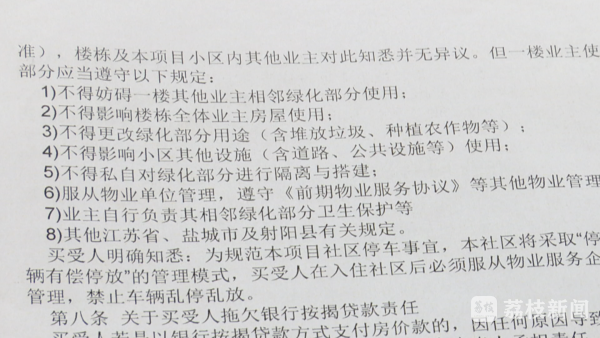 准），楼栋及本项目小区内其他业主对此知悉并无异议。但一楼业主使
部分应当遵守以下规定：
1)不得妨碍一楼其他业主相邻绿化部分使用；
2)不得影响楼栋全体业主房屋使用；
3)不得更改绿化部分用途（含堆放垃圾、种植农作物等）；
4)不得影响小区其他设施（含道路、公共设施等）使用；
5)不得私自对绿化部分进行隔离与搭建；
6)服从物业单位管理，遵守《前期物业服务协议》等其他物业管理
7)业主自行负责其相邻绿化部分卫生保护等
8)其他江苏省、盐城市及射阳县有关规定。
买受人明确知悉：为规范本项目社区停车事宜，本社区将采取“停
辆有偿停放”的管理模式，买受人在入住社区后必须服从物业服务企
管理，禁止车辆乱停乱放。
第八条 关于买受人拖欠银行按揭贷款责任
买受人若是以银行按揭贷款方式支付房价款的，因任何原因导致
荔枝新闻